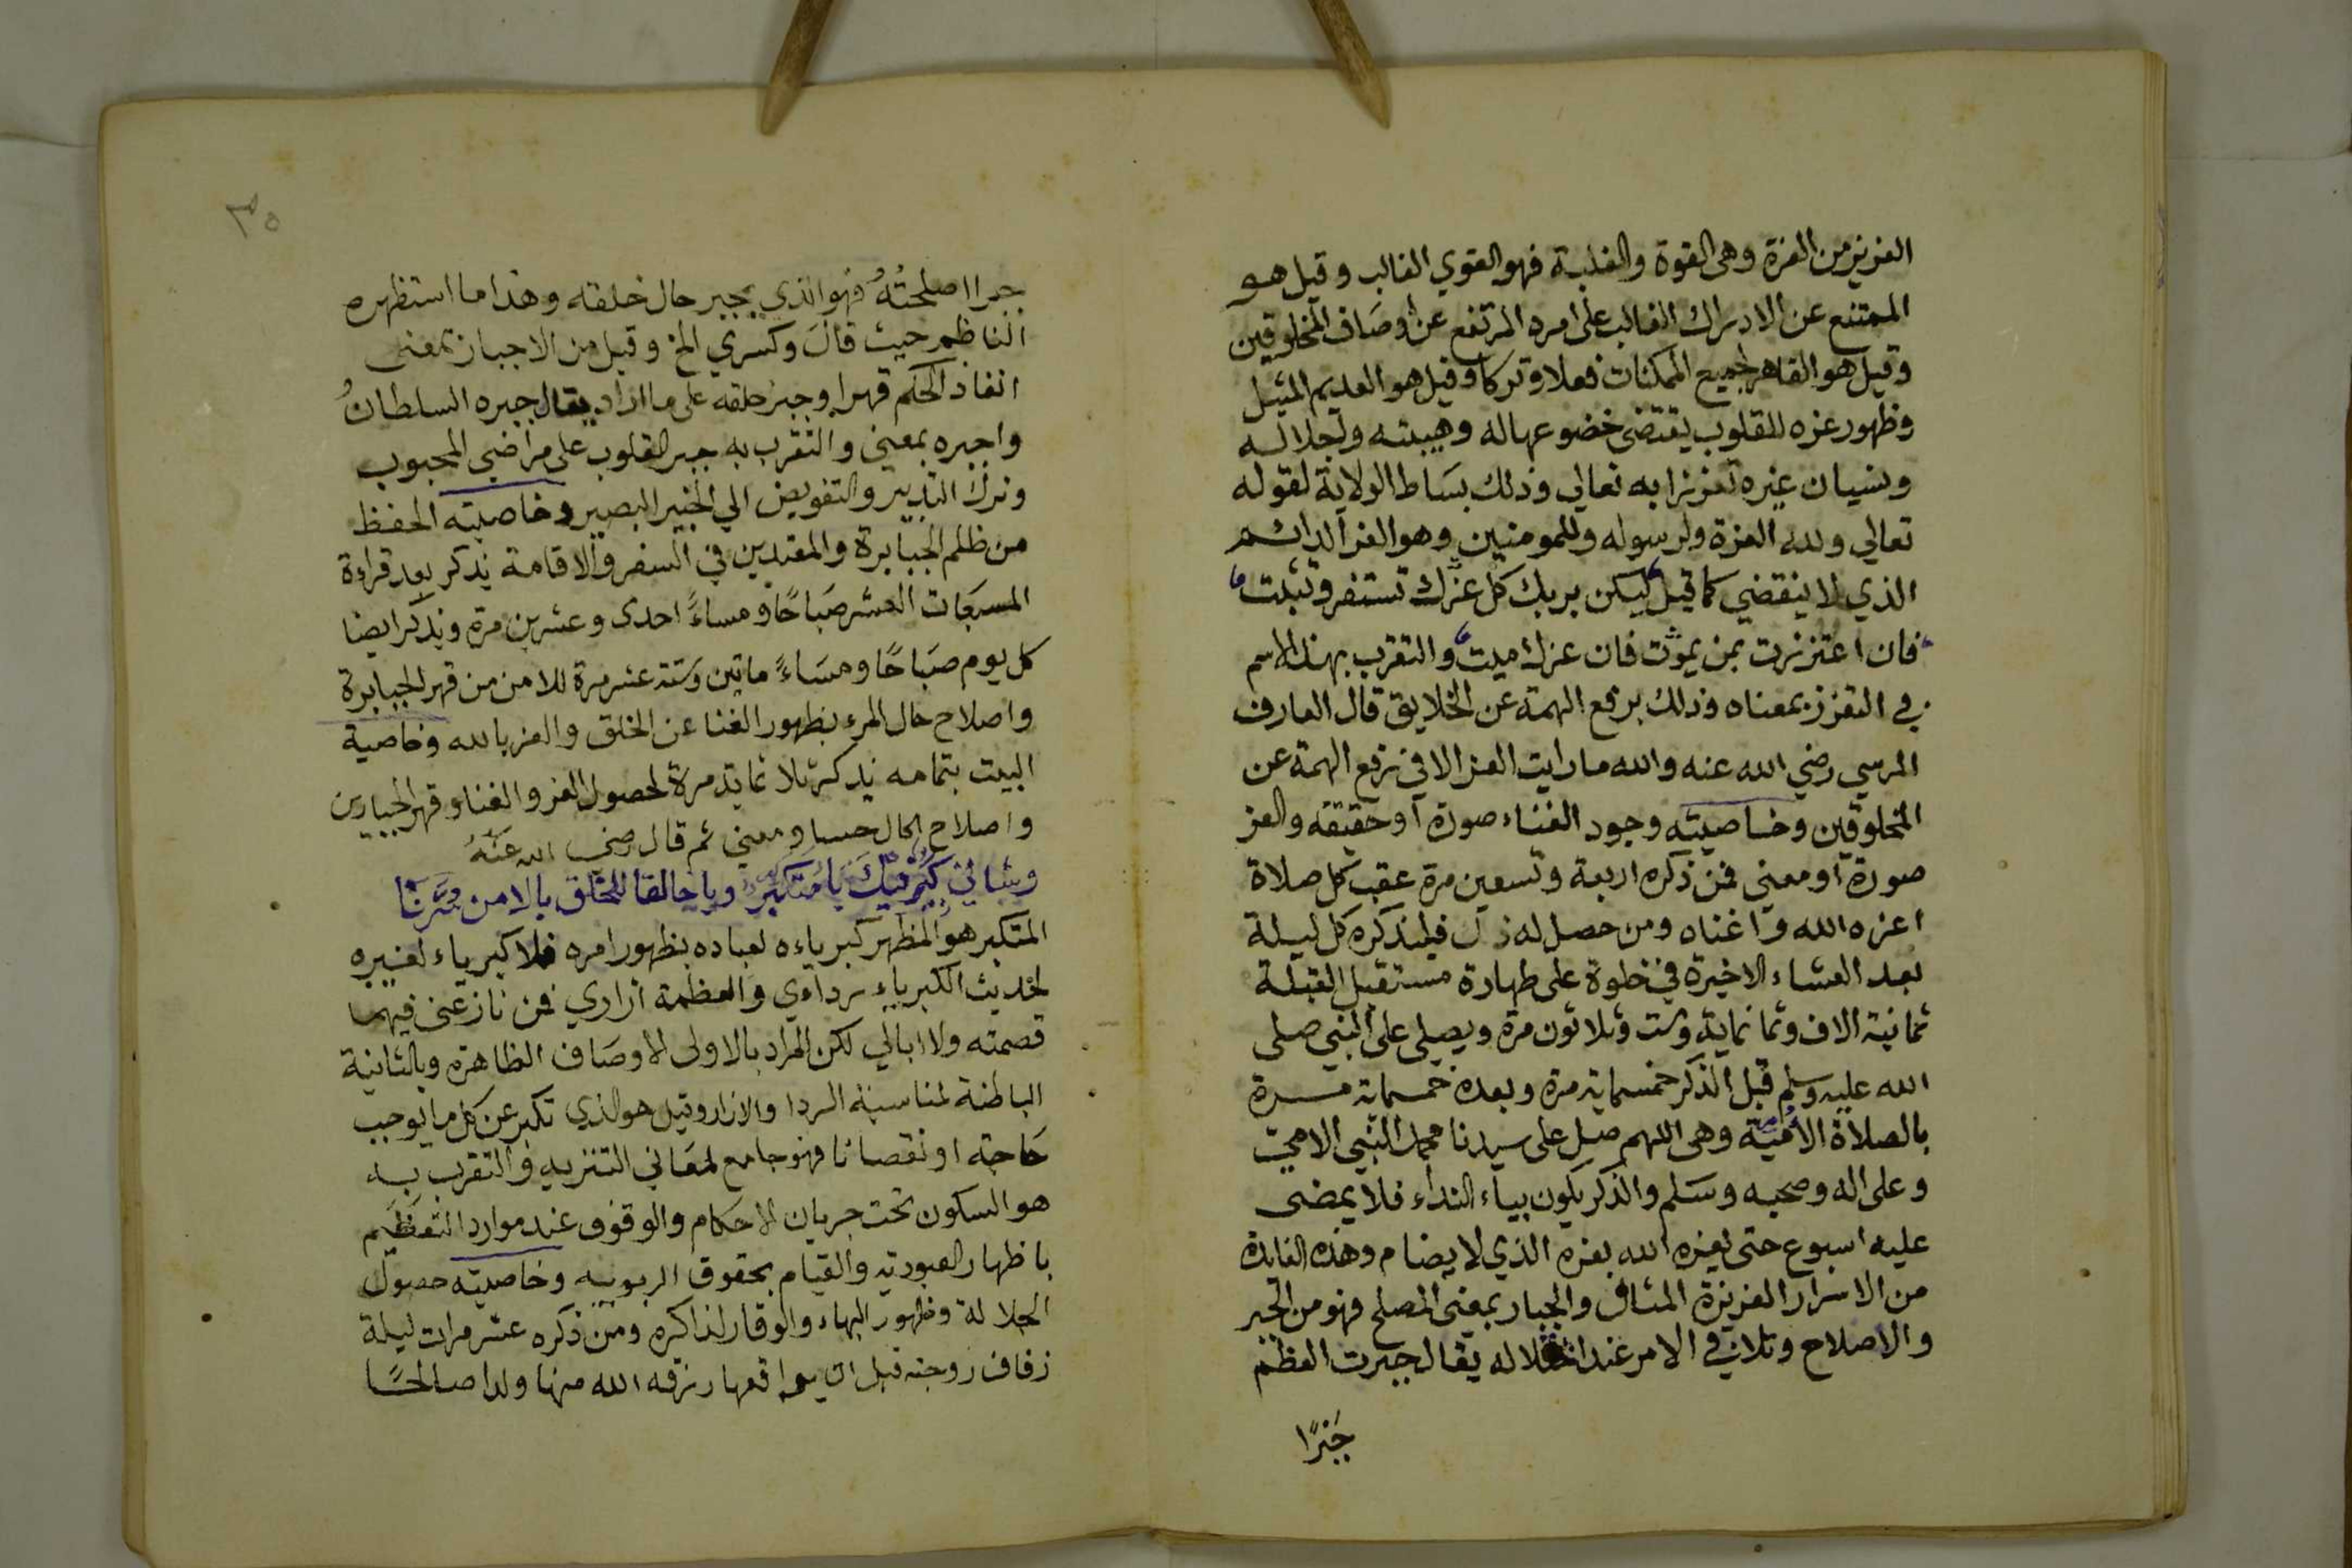 العزيز من العزة وهى القوة والغلبة فهو القوي الغالب وقيل هو
الممتنع عن الادراك الغالب على امره المرتفع عن أوصاف المخلوقين
وقيل هو القاهر لجميع الممكنات فعلا وتركا وقيل هو العديم المثيل
وظهور عزه للقلوب يقتضى خضوعها له وهيبته ولجلاله
ونسيان غيره تعززا به تعالى وذلك بساط الولاية لقوله
تعالي ولله العزة ولرسوله وللمومنين وهو العز الدائم
الذي لا ينقضي كما قيل ليكن بربك كل عزك تستقر وتثبت
فان اعتززت بمن يموت فان عزك ميت والتقرب بهذا الاسم
في التعزز بمعناه وذلك برفع الهمة عن الخلايق قال العارف
المرسي رضي الله عنه والله ما رايت العز الا في رفع الهمة عن
المخلوقين وخاصيته وجود الغناء صورة او حقيقة والعز
صورة او معنى فمن ذكره اربعة وتسعين مرة عقب كل صلاة
اعزه الله واغناه ومن حصل له ذل فليذكره كل ليلة
بعد العشاء الاخيرة في خلوة على طهارة مستقبل القبلة
ثمانية الاف وثمانماية وست وثلاثون مرة ويصلى على النبي صلى
الله عليه وسلم قبل الذكر خمسماية مرة وبعده خمسماية مرة
بالصلاة الأمية وهى اللهم صل على سيدنا محمد النبي الامي
وعلى اله وصحبه وسلم والذكر يكون بياء النداء فلا يمضى
عليه اسبوع حتى يعزه الله بعزه الذي لا يضام وهذه الفايدة
من الاسرار العزيزة المثال والجبار بمعنى المصلح فهو من الجبر
والاصلاح وتلافي الامر عند اختلاله يقال جبرت العظم
جَبْرًا
٣٥
جبرا اصلحتُهُ فهو الذي يجبر حال خلقه وهذا ما استظهره
الناظم حيث قال وكسري الخ وقيل من الاجبار بمعنى
انفاذ الحكم قهرا وجبر خلقه على ما اراد يقال جبره السلطانُ
واجبره بمعنى والتقرب به جبر القلوب على مراضي المحبوب
وترك التدبير والتفويض الي الخبير البصير وخاصيته الحفظ
من ظلم الجبابرة والمعتدين في السفر والاقامة يذكر بعد قراءة
المسبعات العشر صباحًا ومساءً احدى وعشرين مرة ويذكر ايضا
كل يوم صباحًا ومساءً ماتين وستة عشر مرة للامن من قهر الجبابرة
واصلاح حال المرء بظهور الغنا عن الخلق والعز بالله وخاصية
البيت بتمامه يذكر ثلاثماية مرة لحصول العز والغنا وقهر الجبارين
واصلاح الحال حسا ومعنى ثم قال رضي الله عَنْهُ
وشاني كَبِّر فيكَ يا مُتكبر ويا خالقا للخلق بالامن
المتكبر هو المظهر كبرياءه لعباده بظهور امره فلا كبرياء لغيره
لحديث الكبرياء رداءي والعظمة ازاري فمن نازعنى فيهما
قصمته ولا ابالي لكن المراد بالاولى الاوصاف الظاهرة وبالثانية
الباطنة لمناسبة الردا والازار وقيل هو الذي تكبر عن كل ما يوجب
حاجة او نقصانا فهو جامع لمعاني التنزيه والتقرب به
هو السكون تحت جريان الاحكام والوقوف عند موارد التعظيم
باظهار العبودية والقيام بحقوق الربوبيه وخاصيته حصول
الجلالة وظهور البهاء والوقار لذاكره ومن ذكره عشر مرات ليلة
زفاف زوجته قبل ان يواقعها رزقه الله منها ولدا صالحًا